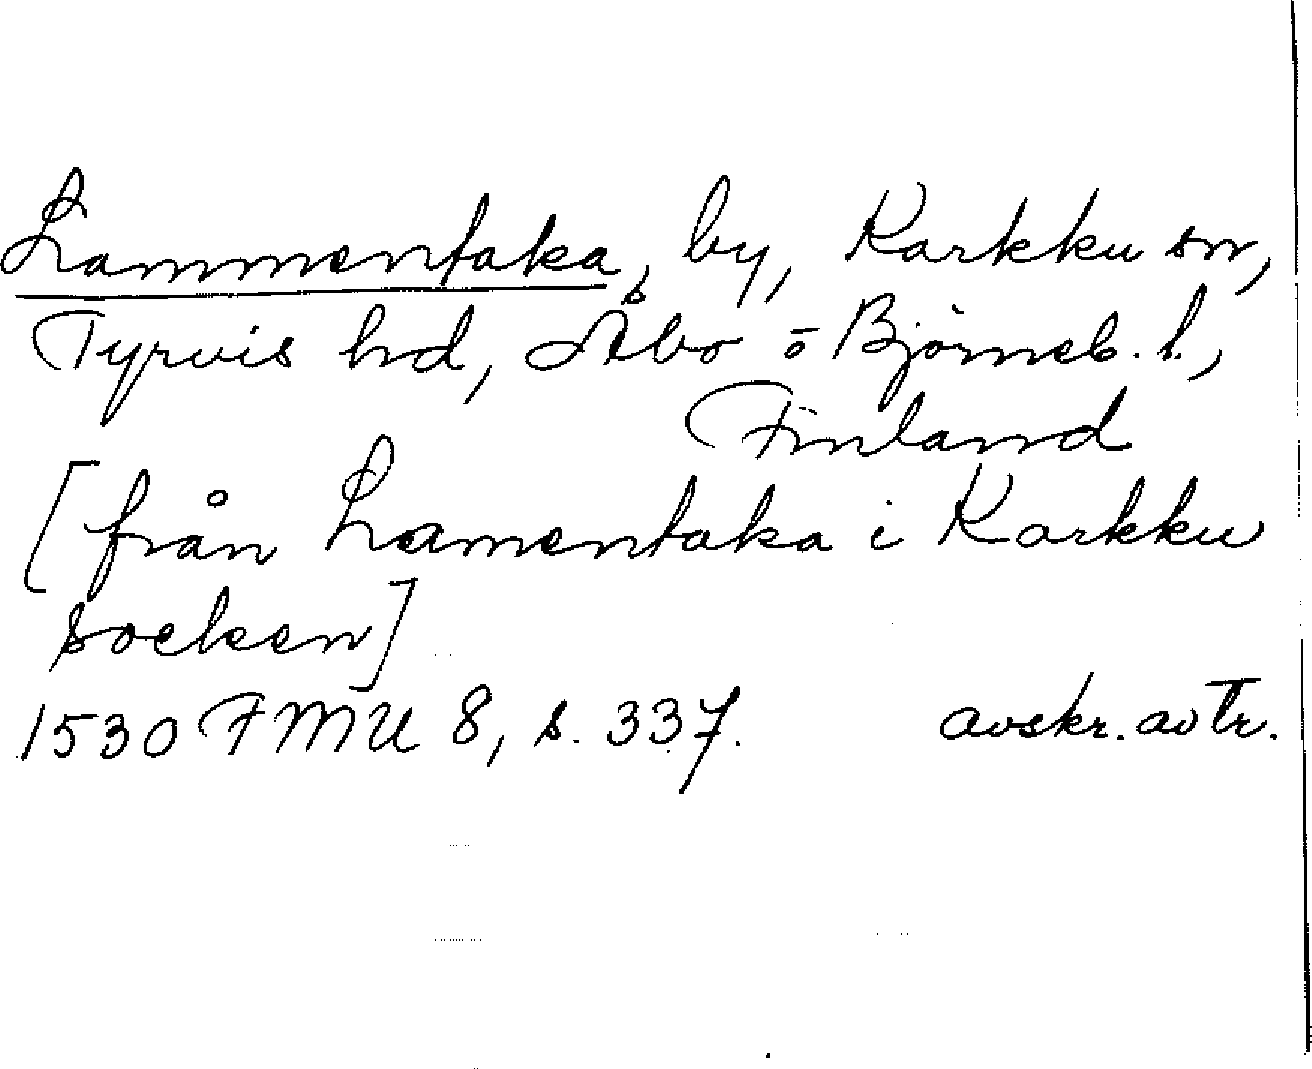 Lammentaka, by, Karkku sn,
Tyrvis hd, Åbo o Björneb. l.,
Finland
[från Lamentaka i Karkku
socken]
1530 FMU 8, s. 337. avskr. av Tr.